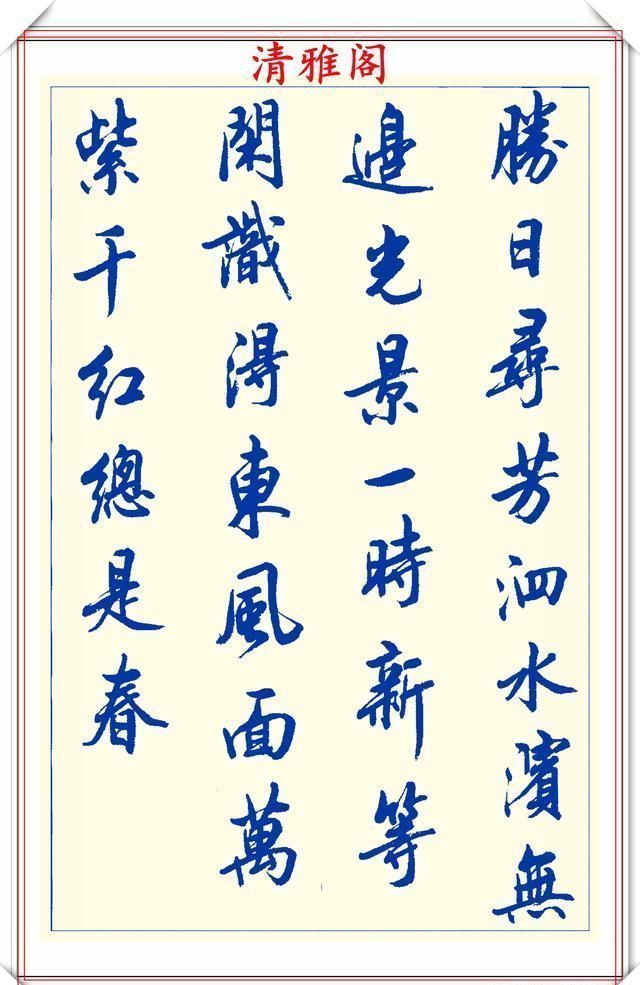 清雅阁
勝日尋芳泗水濱無
邊光景一時新等
閑識得東風面萬
紫千红總是春